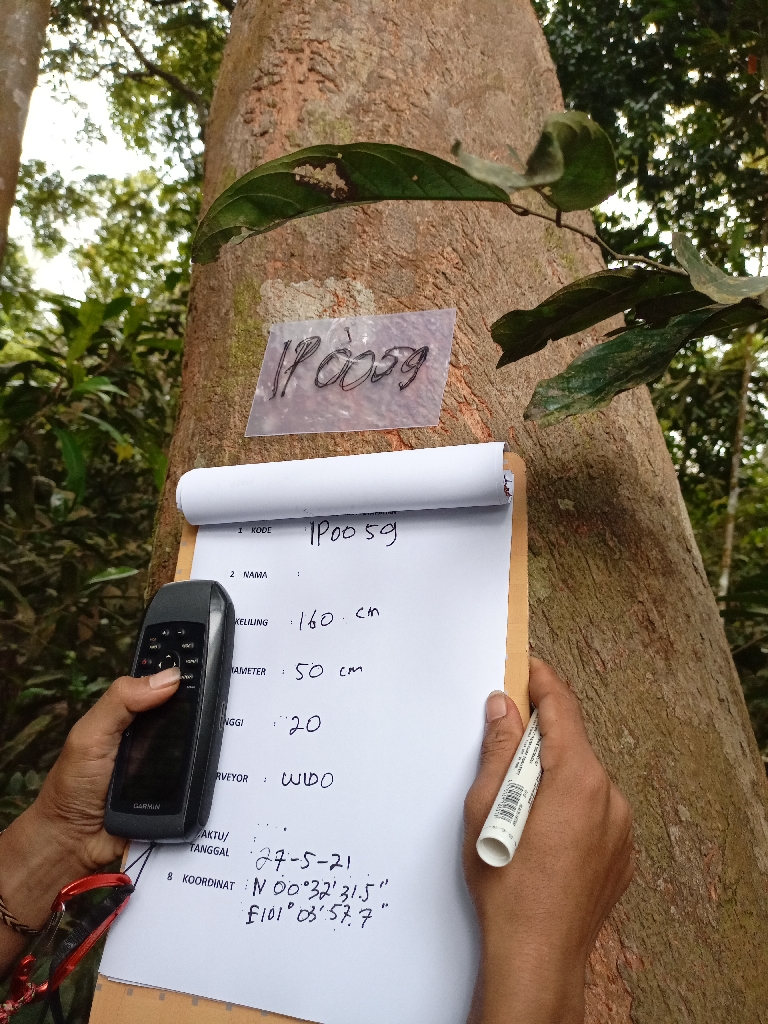 IP0059
1 KODE IP0059
2 NAMA :
KELILING : 160 cm
DIAMETER : 50 cm
NGGI : 20
RVEYOR : WIDO
AKTU/ :
TANGGAL 27-5-21
8 KOORDINAT : N 00°32'31.5"
E101°03'57.7"
GARMIN